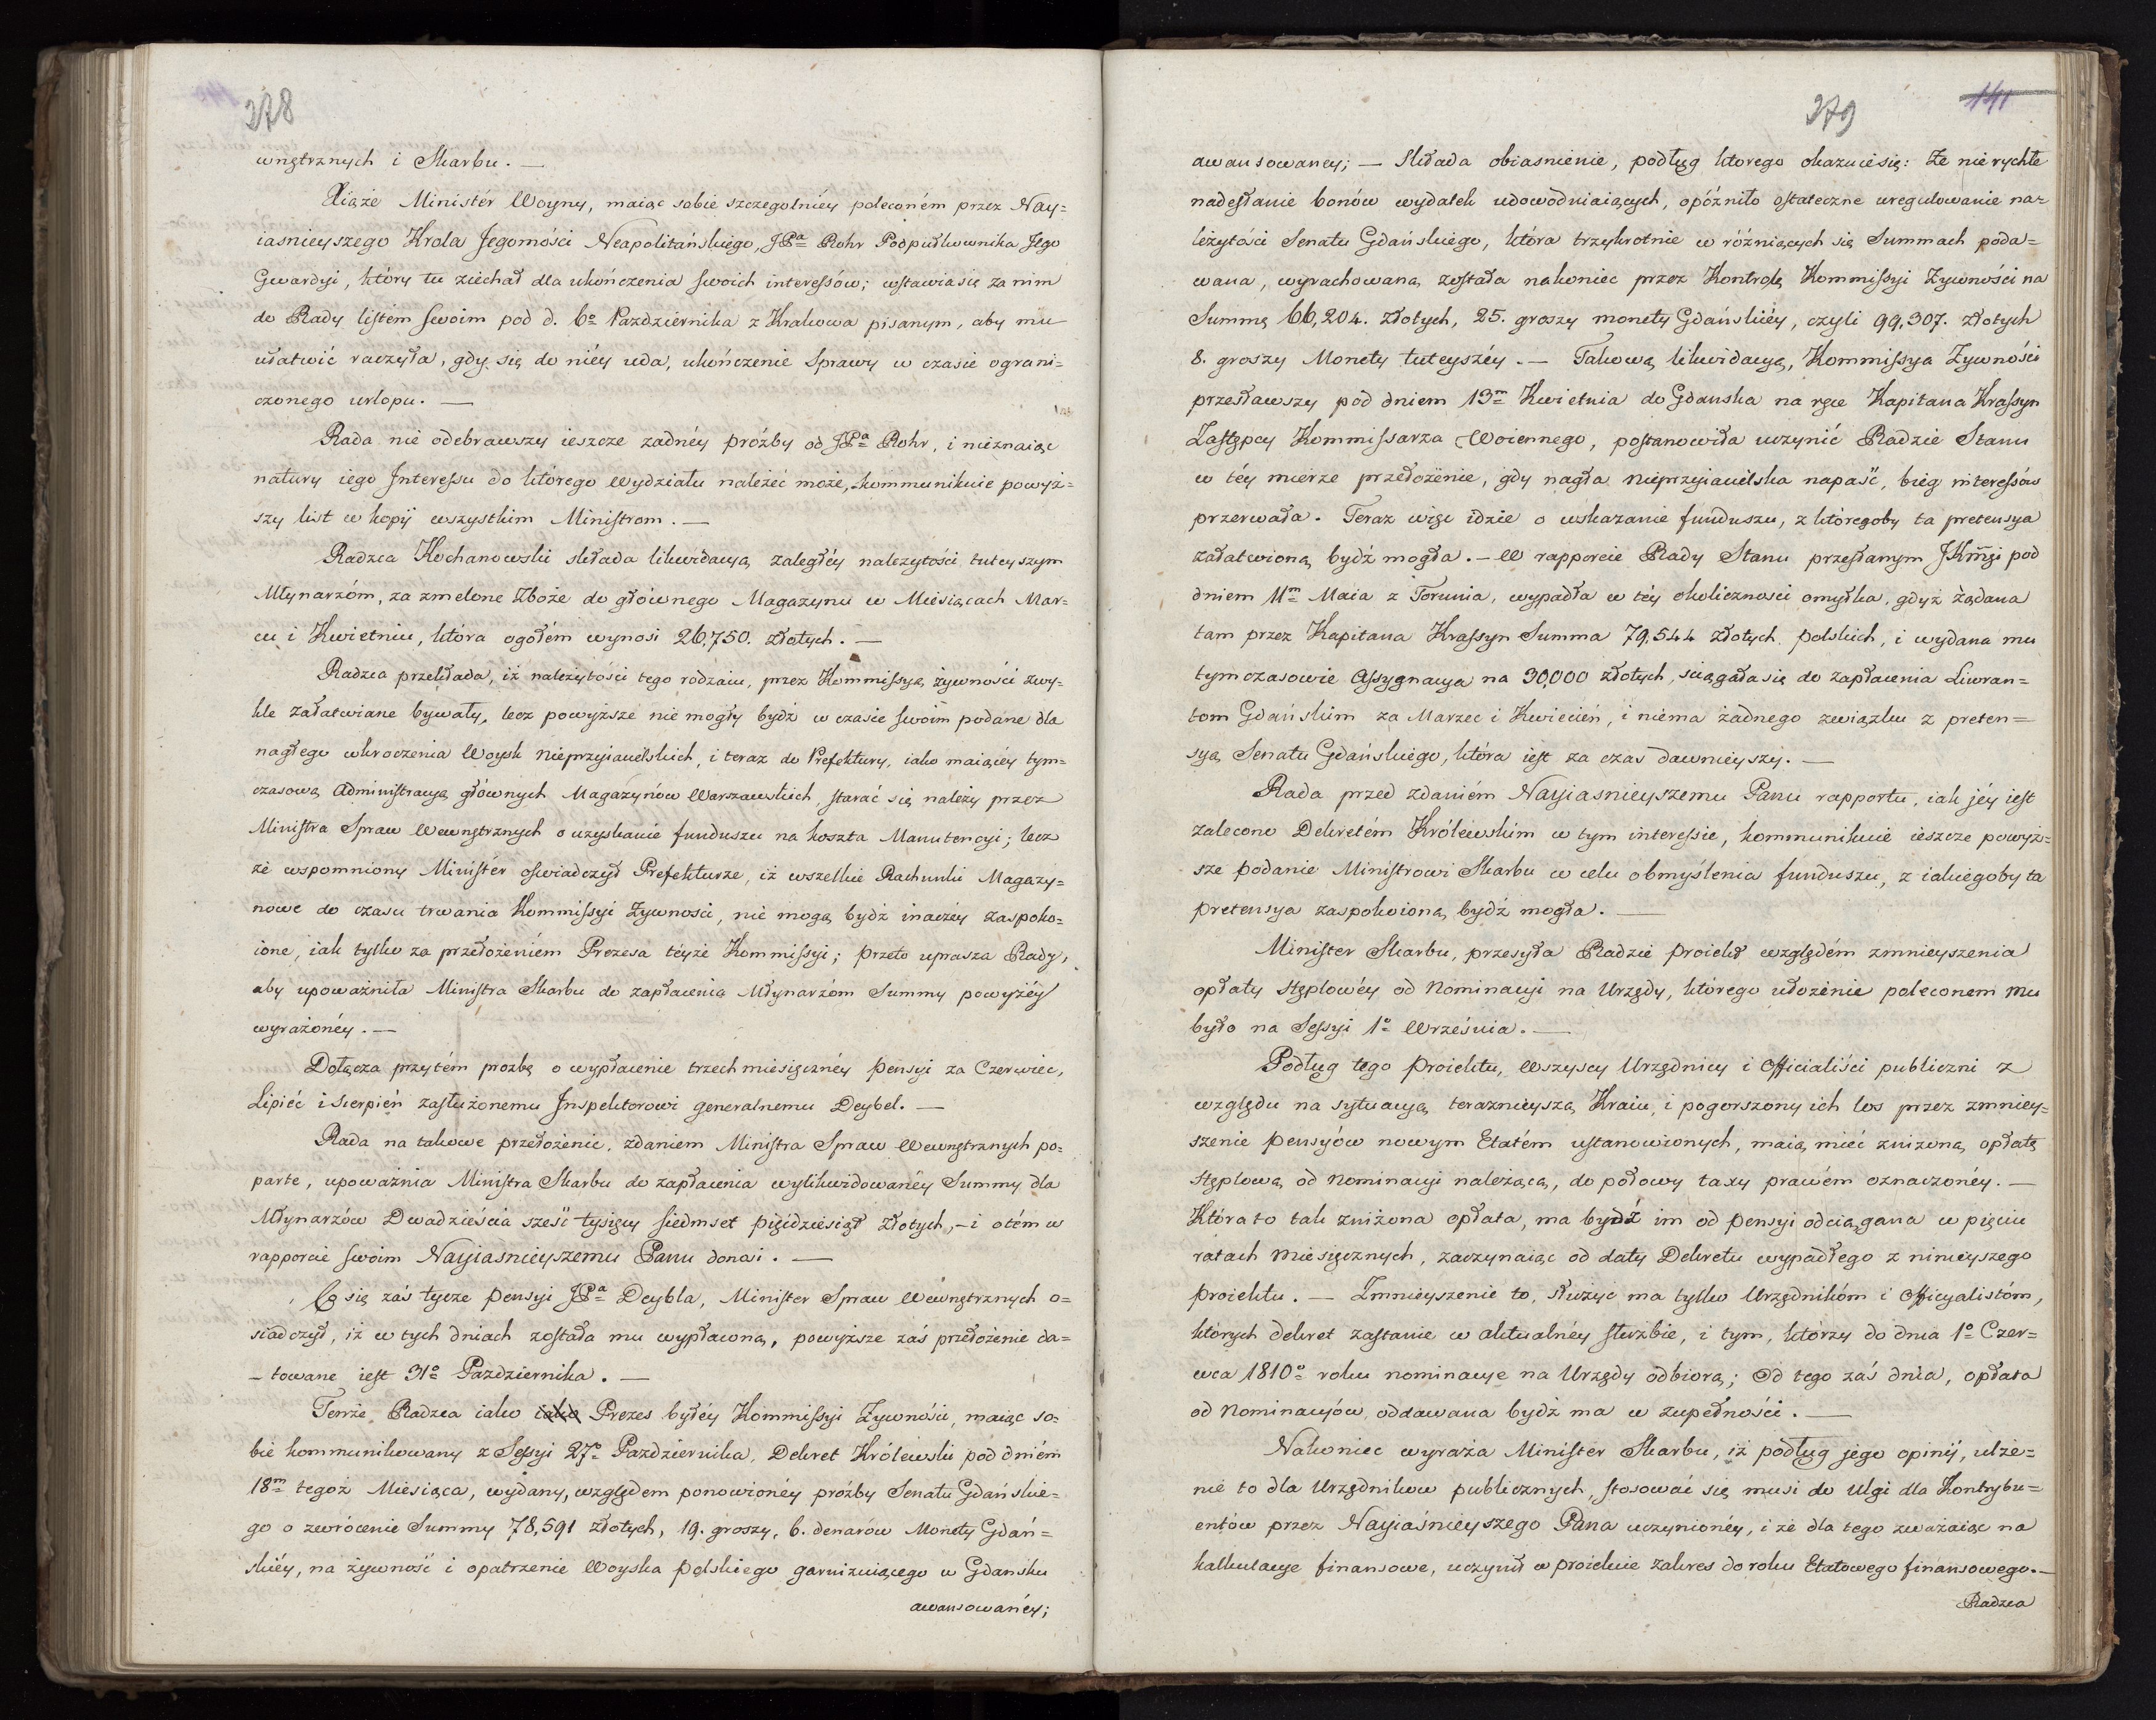 278
wnętrznych i Skarbu. —
Xiąże Ministér Woyny, maiąc sobie szczegolniéy poleconém przez Nay=
iasnieyszego Krola Jegomości Neapolitańskiego, JPa Rohr Podpułkownika Jego
Gwardyi, który tu ziechał dla ukończenia swoich interessów; wstawia się za nim
do Rady listém swoim pod d. 6o Pazdziernika z Krakowa pisanym, aby mu
ułatwić raczyła, gdy się do niéy uda, ukończenie Sprawy w czasie ograni=
czonego urlopu. —
Rada nie odebrawszy ieszcze zadnéy próźby od JPa Rohr, i nieznaiąc
natury iego Interessu do którego Wydziału należeć może, kommunikuie powyż=
szy list w kopij wszystkim Ministrom. —
Radzca Kochanowski składa likwidacyą zaległéy nalezytości tuteyszym
Młynarzóm, za zmelone Zboże do głównego Magazynu w Miesiącach Mar=
cu i Kwietniu, która ogołém wynosi 26,750. złotych. —
Radzca przekłada, iż należytości tego rodzaiu, przez Kommissyą żywności zwy=
kle załatwiane bywały, lecz powyższe nie mogły bydź w czasie swoim podane dla
nagłego wkroczenia Woysk Nieprzyiacielskich, i teraz do Prefektury, iako maiącéy tym=
czasową Administracyą głównych Magazynów Warszawskich, starać się należy przez
Ministra Spraw Wewnętrznych o uzyskanie funduszu na koszta Manutencyi; lecz
że wspomniony Ministér oświadczył Prefekturze, iż wszelkie Rachunki Magazy=
nowe do czasu trwania Kommissyi Żywności, nie mogą bydź inaczéy zaspoko=
ione, iak tylko za przełożeniém Prezesa téyże Kommissyi; przeto uprasza Rady,
aby upoważniła Ministra Skarbu do zapłacenia Młynarzóm Summy powyżéy
wyrażonéy. —
Dołącza przytém prozbę o wypłacenie trzech miesięcznéy pensyi za Czerwiec,
Lipiéc i Sierpień zasłużonemu Inspektorowi generalnemu Deybel. —
Rada na takowe przełożenie, zdaniem Ministra Spraw Wewnętrznych po=
parte, upoważnia Ministra Skarbu do zapłacenia wylikwidowanéy Summy dla
Młynarzów Dwadzieścia sześć tysięcy siedmset pięćdziesiąt złotych, — i o tém w
rapporcie swoim Nayiasnieyszemu Panu donosi. —
Co się zaś tycze pensyi JPa Deybla, Minister Spraw Wewnętrznych o=
siadczył, iż w tych dniach została mu wypłaconą, powyższe zaś przełożenie da=
– towane iest 31o Pazdziernika. —
Tenże Radzca iako iako Prezes byłéy Kommissyi Zywności, maiąc so=
bie kommunikowany z Sessyi 27o Pazdziernika, Dekret Królewski pod dniém
18m tegoż Miesiąca, wydany, względem ponowionéy próźby Senatu Gdańskie=
go o zwrócenie Summy 78,591 złotych, 19. groszy, 6. denarów Monety Gdań=
skiéy, na żywność i opatrzenie Woyska polskiego garnizuiącego w Gdansku
awansowanéy;
279
141
awansowaney; — Składa obiasnienie, podług ktorego okazuie się: Że nie rychłe
nadesłanie bonów wydatek udowodniaiących, opóźniło ostateczne uregulowanie na=
leżytości Senatu Gdańskiego, która trzykrotnie w różniących się Summach poda=
wana, wyrachowaną została nakoniec przez Kontrolę Kommissyi Żywności na
Summę 66,204. złotych, 25. groszy monety Gdańskiéy, czyli 99,307. złotych
8. groszy Monety tuteyszéy. — Takową likwidacyą, Kommissya Żywności
przesławszy pod dniem 13m Kwietnia do Gdanska na ręce Kapitana Krassyn
Zastępcy Kommissarza Woiennego, postanowiła uczynić Radzie Stanu
w téy mierze przełożenie, gdy nagła nieprzyiacielska napaść, bieg interessów
przerwała. Teraz więc idzie o wskazanie funduszu, z któregoby ta pretensya
załatwioną bydź mogła. — W rapporcie Rady Stanu przesłanym JKMci pod
dniem 11m Maia z Torunia, wypadła w téy okoliczności omyłka, gdyż żądana
tam przez Kapitana Krassyn Summa 79,544 złotych polskich, i wydana mu
tymczasowie Assygnacya na 30,000 złotych, sciągała się do zapłacenia Liwran=
tom Gdańskim za Marzec i Kwiecień, i niema żadnego związku z preten=
syą Senatu Gdańskiego, która iest za czas dawnieyszy. —
Rada przed zdaniém Nayiasnieyszemu Panu rapportu, iak jéy iest
zalecono Dekretém Królewskim w tym interessie, kommunikuie ieszcze powyż=
sze podanie Ministrowi Skarbu w celu obmyślenia funduszu, z iakiegoby ta
pretensya zaspokoioną bydź mogła. —
Minister Skarbu, przesyła Radzie proiekt względém zmnieyszenia
opłaty stęplowéy od Nominacyi na Urzędy, którego ułożenie poleconem mu
było na Sessyi 1o Września. —
Podług tego proiektu, Wszyscy Urzędnicy i Officialiści publiczni z
względu na sytuacyą teraznieyszą Kraiu, i pogorszony ich los przez zmniey=
szenie pensyów nowym Etatém ustanowionych, maią mieć zniżoną opłatę
stęplową od Nominacyi należącą, do połowy taxy prawém oznaczonéy. —
Która to tak zniżona opłata, ma bydź im od pensyi odciągana w pięciu
ratach miesięcznych, zaczynaiąc od daty Dekretu wypadłego z ninieyszego
proiektu. — Zmnieyszenie to, służyć ma tylko Urzędnikóm i Officyalistóm,
których dekret zastanie w aktualnéy służbie, i tym, którzy do dnia 1o Czer=
wca 1810o roku nominacye na Urzędy odbiorą; Od tego zaś dnia, opłata
od Nominacyów, oddawana bydź ma w zupełności. —
Nakoniec wyraża Ministér Skarbu, iż podług jego opinij, ulże=
nie to dla Urzędnikow publicznych, stosować się musi do ulgi dla Kontrybu=
entów przez Nayiaśnieyszego Pana uczynionéy, i że dla tego zważaiąc na
kalkulacye finansowe, uczynił w proiekcie zakres do roku Etatowego finansowego. —
Radzca